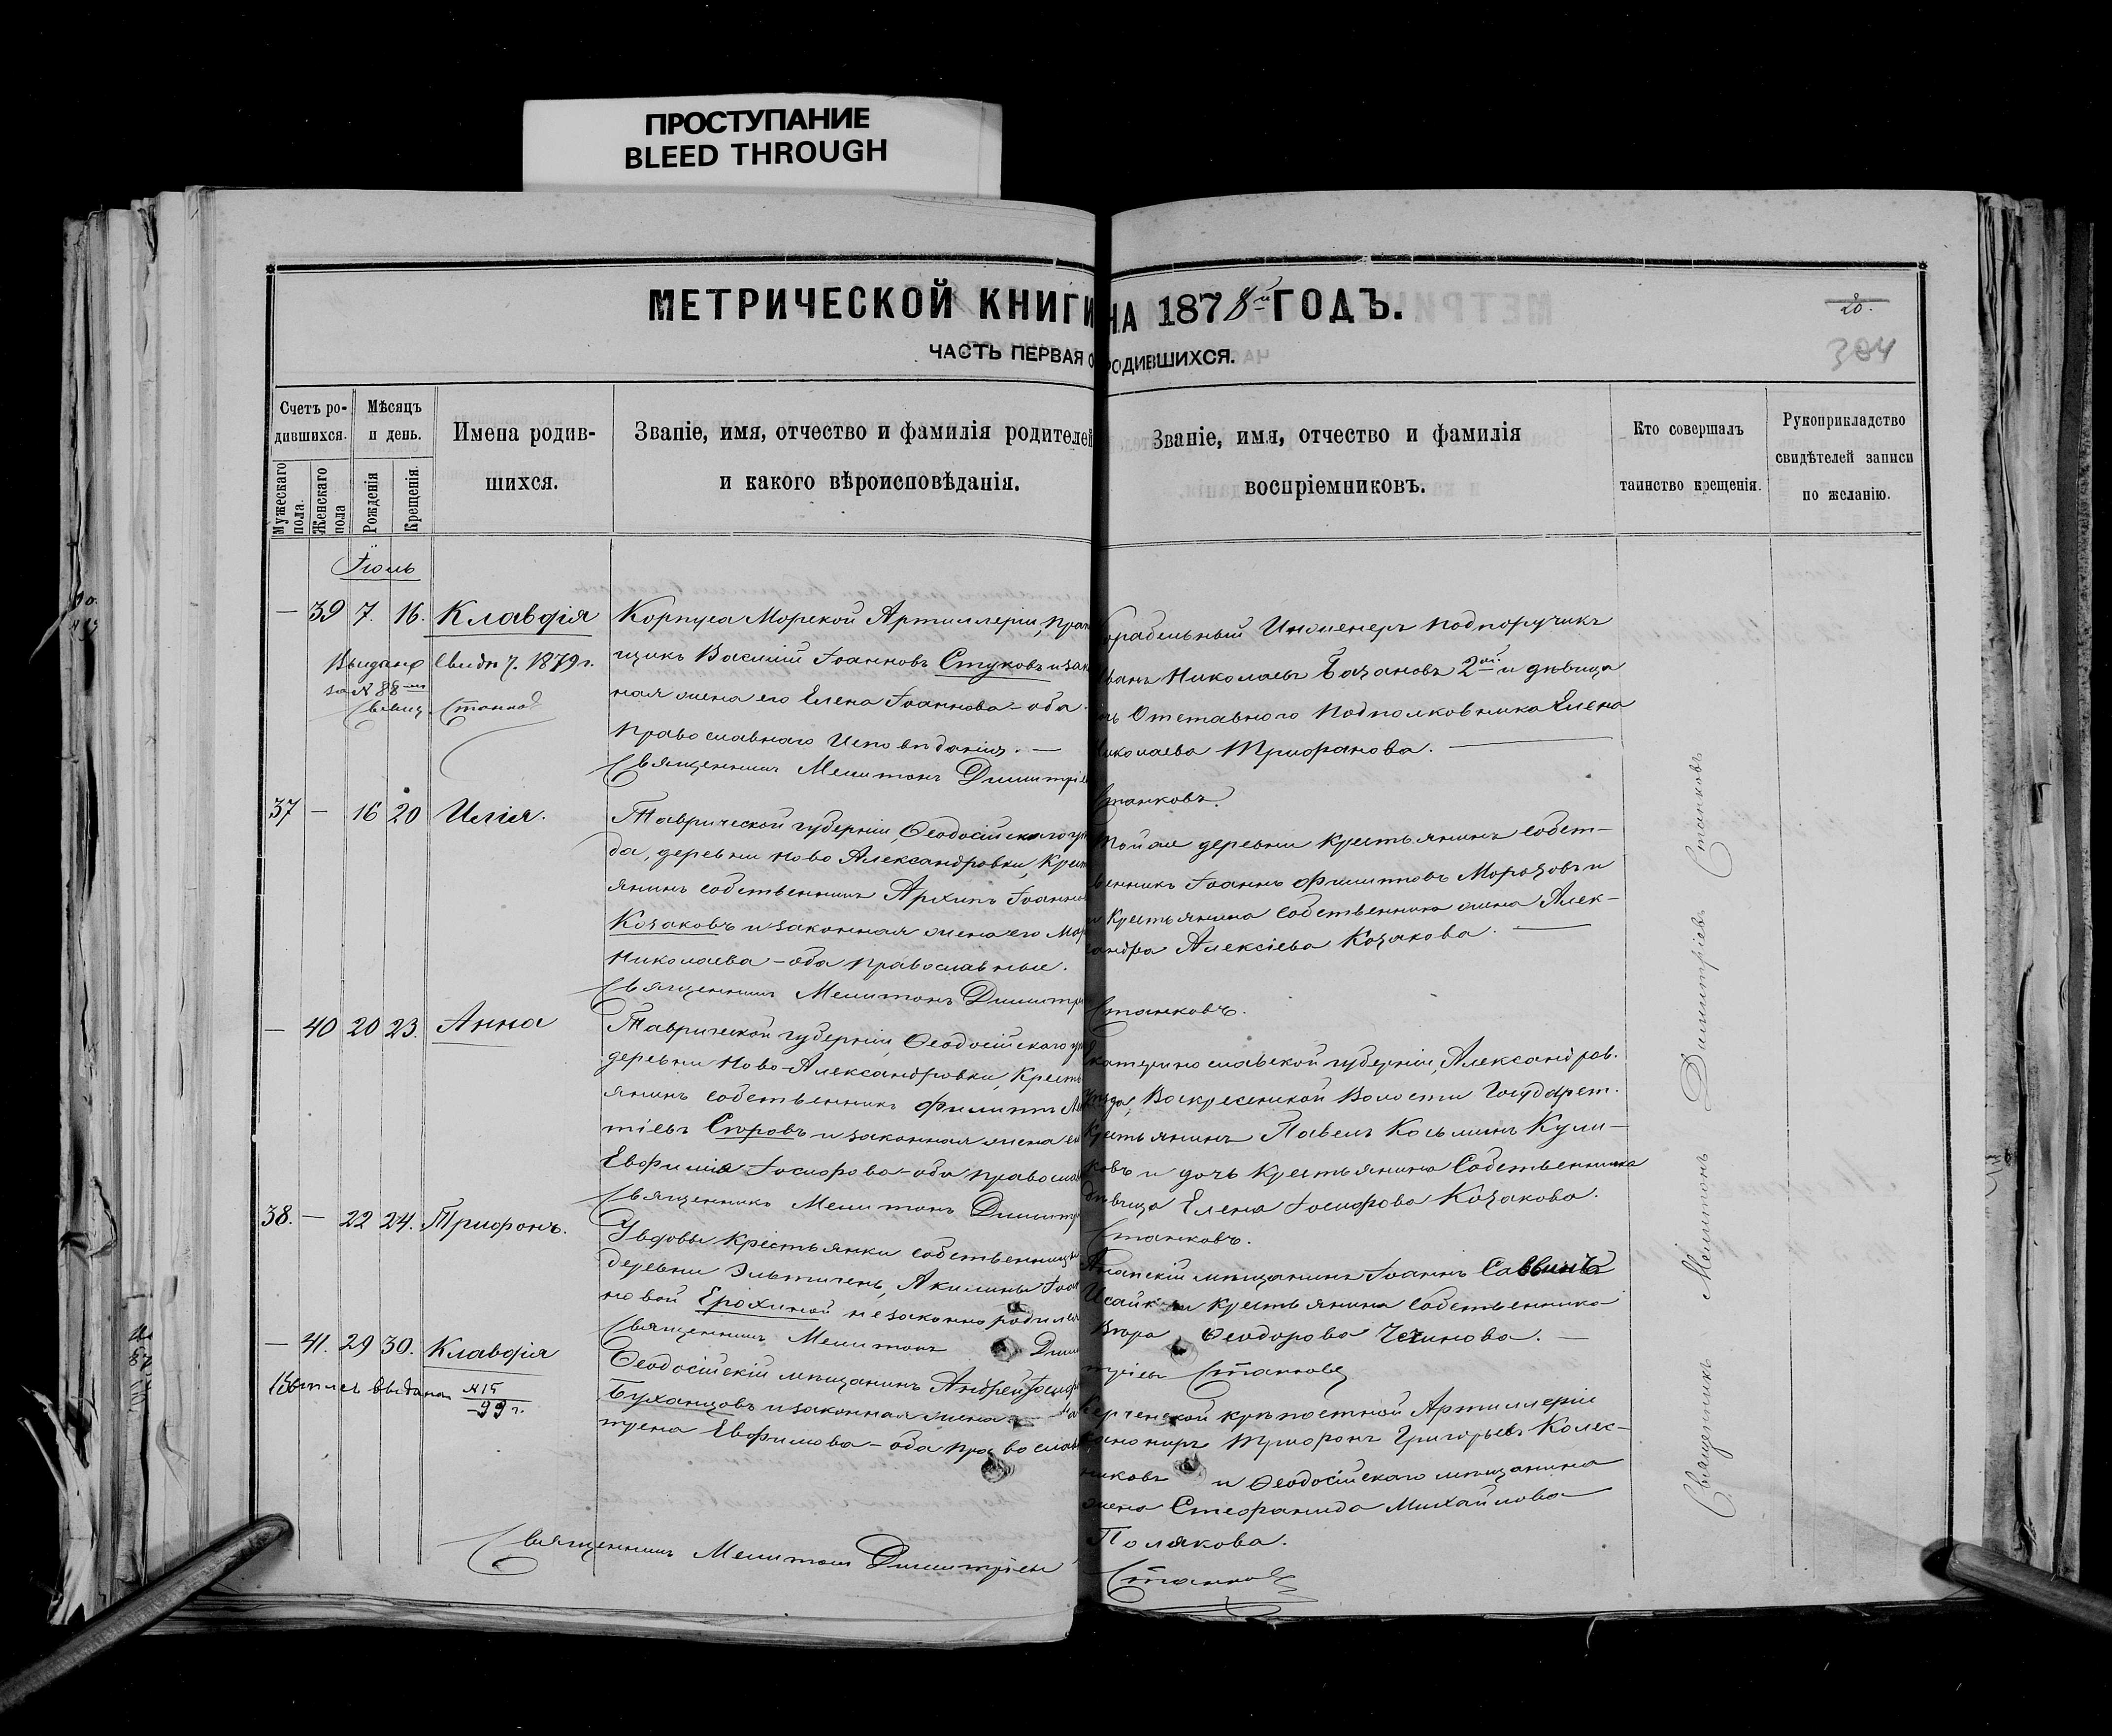 ПРОСТУПАНИЕ
BLEED THROUGH
МЕТРИЧЕСКОЙ КНИГИ НА 1878й ГОДЪ.
ЧАСТЬ ПЕРВАЯ О РОДИВШИХСЯ.
20.
304
Счетъ ро-
дившихся.
Мужескаго пола.
Женскаго пола
Мѣсяцъ
и день.
Рожденія
Крещенія.
Имена родив-
шихся.
Званіе, имя, отчество и фамилія родителей
и какого вѣроисповѣданія.
Званіе, имя, отчество и фамилія
воспріемниковъ.
Кто совершалъ
таинство крещенія.
Рукоприкладство
свидѣтелей записи
по желанію.
Іюль
— 39 7. 16. Клавдія
Выдано Свидѣ 7. 1879 г.
за № 88
Свящ Станков
Корпуса Морской Артиллеріи, прап
щикъ Василій Іоанновъ Стуковъ и зак
ная жена его Елена Іоаннова – оба
православнаго Исповѣданія. —
Священникъ Мелитонъ Димитріе
орабельный Инженеръ подпоручикъ
ванъ Николаевъ Базановъ 2ой и дѣвица
чь Отставного Подполковника Елена
Николаева Трифанова. —
Станковъ.
37 — 16 20 Илія.
Таврической губерніи, Ѳеодосійскаго уѣ
да, деревни Ново Александровки, Крест
янинъ собственникъ Архипъ Іоанно
Козаковъ и законная жена его Мар
Николаева – оба православные.
Священникъ Мелитонъ Димитр
Той же деревни Крестьянинъ собст-
венникъ Іоаннъ Филипповъ Морозовъ и
Крестьянина Собственника жена Алек-
сандра Алексіева Козакова. —
Станковъ.
— 40 20 23. Анна
Таврической губерніи, Ѳеодосійскаго уѣ
деревни Ново-Александровки, Кресть
янинъ собственникъ Филиппъ
тіевъ Серовъ и законная жена ег
Евфимія Іосифова – оба правосла
Священникъ Мелитонъ Димитр
катеринославской губерніи, Александров.
уѣзда, Воскресенской Волости Государст.
Крестьянинъ Павелъ Косьминъ Кули-
ковъ и дочь Крестьянина Собственника
дѣвица Елена Іосифова Козакова.
Станковъ.
38. — 22 24. Трифонъ.
У вдовы Крестьянки собственницы
деревни Эльтигень, Акилины Іоан
новой Ерохиной незаконно родилс
Священникъ Мелитонъ Дими
Анапскій мѣщанинъ Іоаннъ Саввинъ
Исайк и Крестьянина Собственника
Вѣра Ѳеодорова Чечинова. —
тріевъ Станковъ
— 41. 29 30. Клавдія
Выпись выдана №15
99 г.
Ѳеодосійскій мѣщанинъ Андрей Іосиф
Буханцовъ и законная жена Ма
трена Евфимова – оба православ
Священникъ Мелитонъ Димитріевъ
Керченской крѣпостной Артиллеріи
канониръ Трифонъ Григорьевъ Колес-
никовъ и Ѳеодосійскаго мѣщанина
жена Стефанида Михайлова
Полякова.
Станковъ
Священникъ Мелитонъ Димитріевъ Станковъ